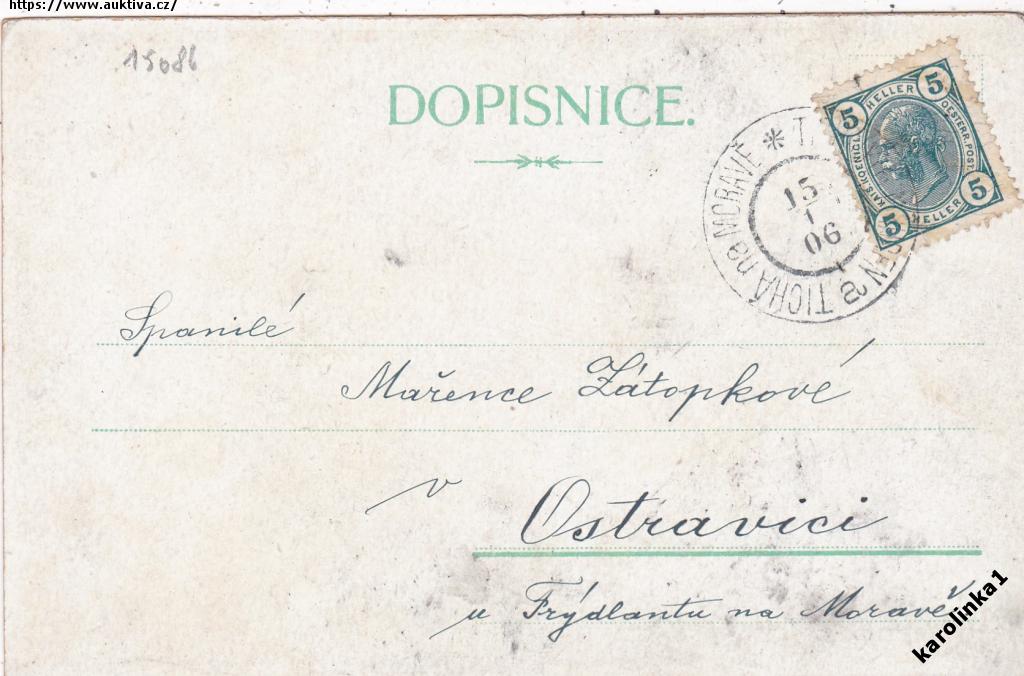 https://www.auktiva.cz/
15086
DOPISNICE.
5 HELLER 5
KAIS. KOENIGL. OESTERR. POST.
5 HELLER 5
TICHÁ na MORAVĚ *
15
06
Spanilé
Mařence Zátopkové
v Ostravici
u Frýdlantu na Moravě
karolinka1